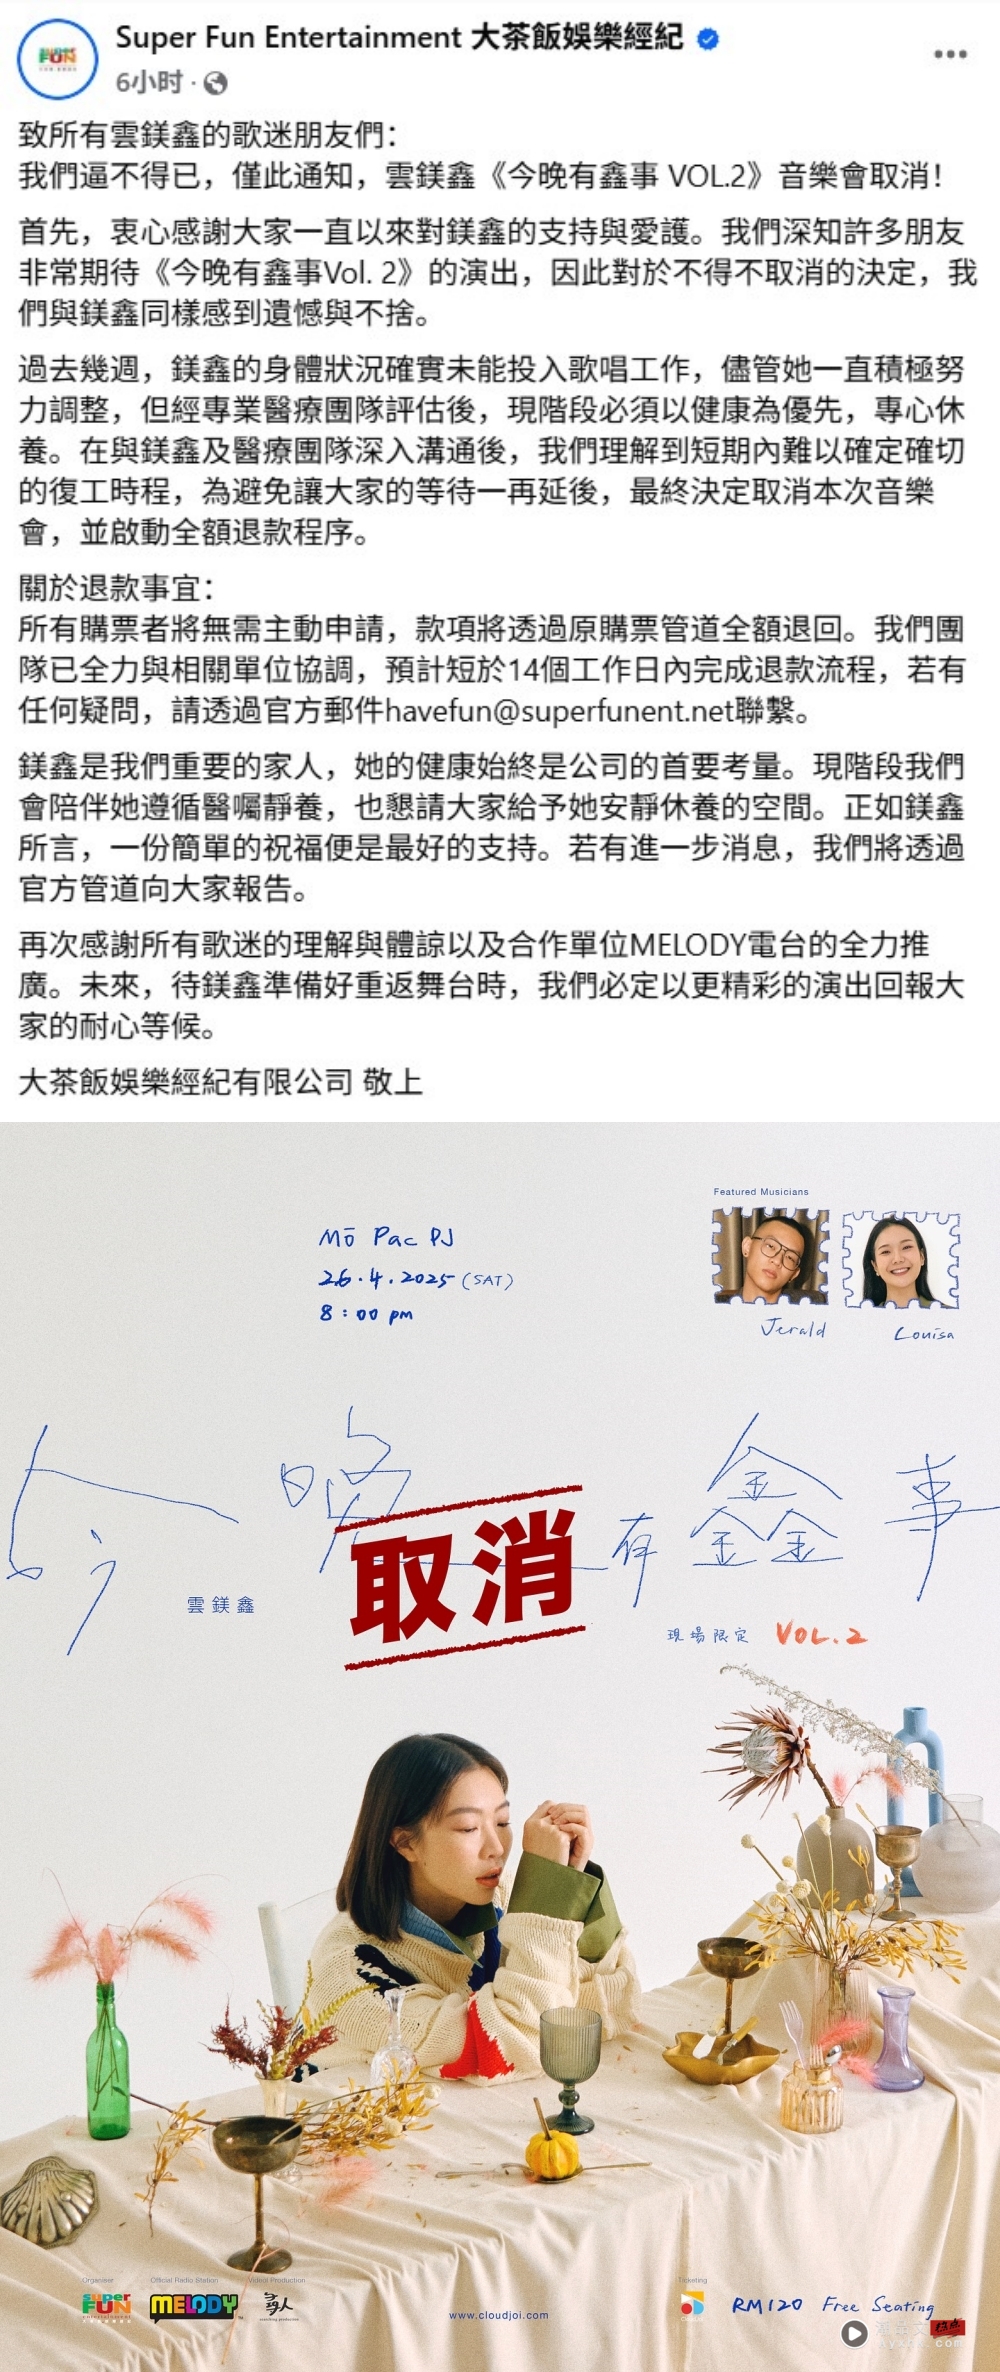 Super Fun Entertainment 大茶飯娛樂經紀
6小时
致所有雲鎂鑫的歌迷朋友們：
我們逼不得已，僅此通知，雲鎂鑫《今晚有鑫事 VOL.2》音樂會取消！
首先，衷心感謝大家一直以來對鎂鑫的支持與愛護。我們深知許多朋友
非常期待《今晚有鑫事Vol. 2》的演出，因此對於不得不取消的決定，我
們與鎂鑫同樣感到遺憾與不捨。
過去幾週，鎂鑫的身體狀況確實未能投入歌唱工作，儘管她一直積極努
力調整，但經專業醫療團隊評估後，現階段必須以健康為優先，專心休
養。在與鎂鑫及醫療團隊深入溝通後，我們理解到短期內難以確定確切
的復工時程，為避免讓大家的等待一再延後，最終決定取消本次音樂
會，並啟動全額退款程序。
關於退款事宜：
所有購票者將無需主動申請，款項將透過原購票管道全額退回。我們團
隊已全力與相關單位協調，預計短於14個工作日內完成退款流程，若有
任何疑問，請透過官方郵件havefun@superfunent.net聯繫。
鎂鑫是我們重要的家人，她的健康始終是公司的首要考量。現階段我們
會陪伴她遵循醫囑靜養，也懇請大家給予她安靜休養的空間。正如鎂鑫
所言，一份簡單的祝福便是最好的支持。若有進一步消息，我們將透過
官方管道向大家報告。
再次感謝所有歌迷的理解與體諒以及合作單位MELODY電台的全力推
廣。未來，待鎂鑫準備好重返舞台時，我們必定以更精彩的演出回報大
家的耐心等候。
大茶飯娛樂經紀有限公司 敬上
Featured Musicians
Mō Pac PJ
26.4.2025 (SAT)
8:00 pm
Jerald
Louisa
今晚有鑫事
取消
雲鎂鑫
現場限定 VOL.2
Organiser
Official Radio Station
Video Production
Ticketing
super FUN
MELODY
www.cloudjoi.com
RM120 Free Seating